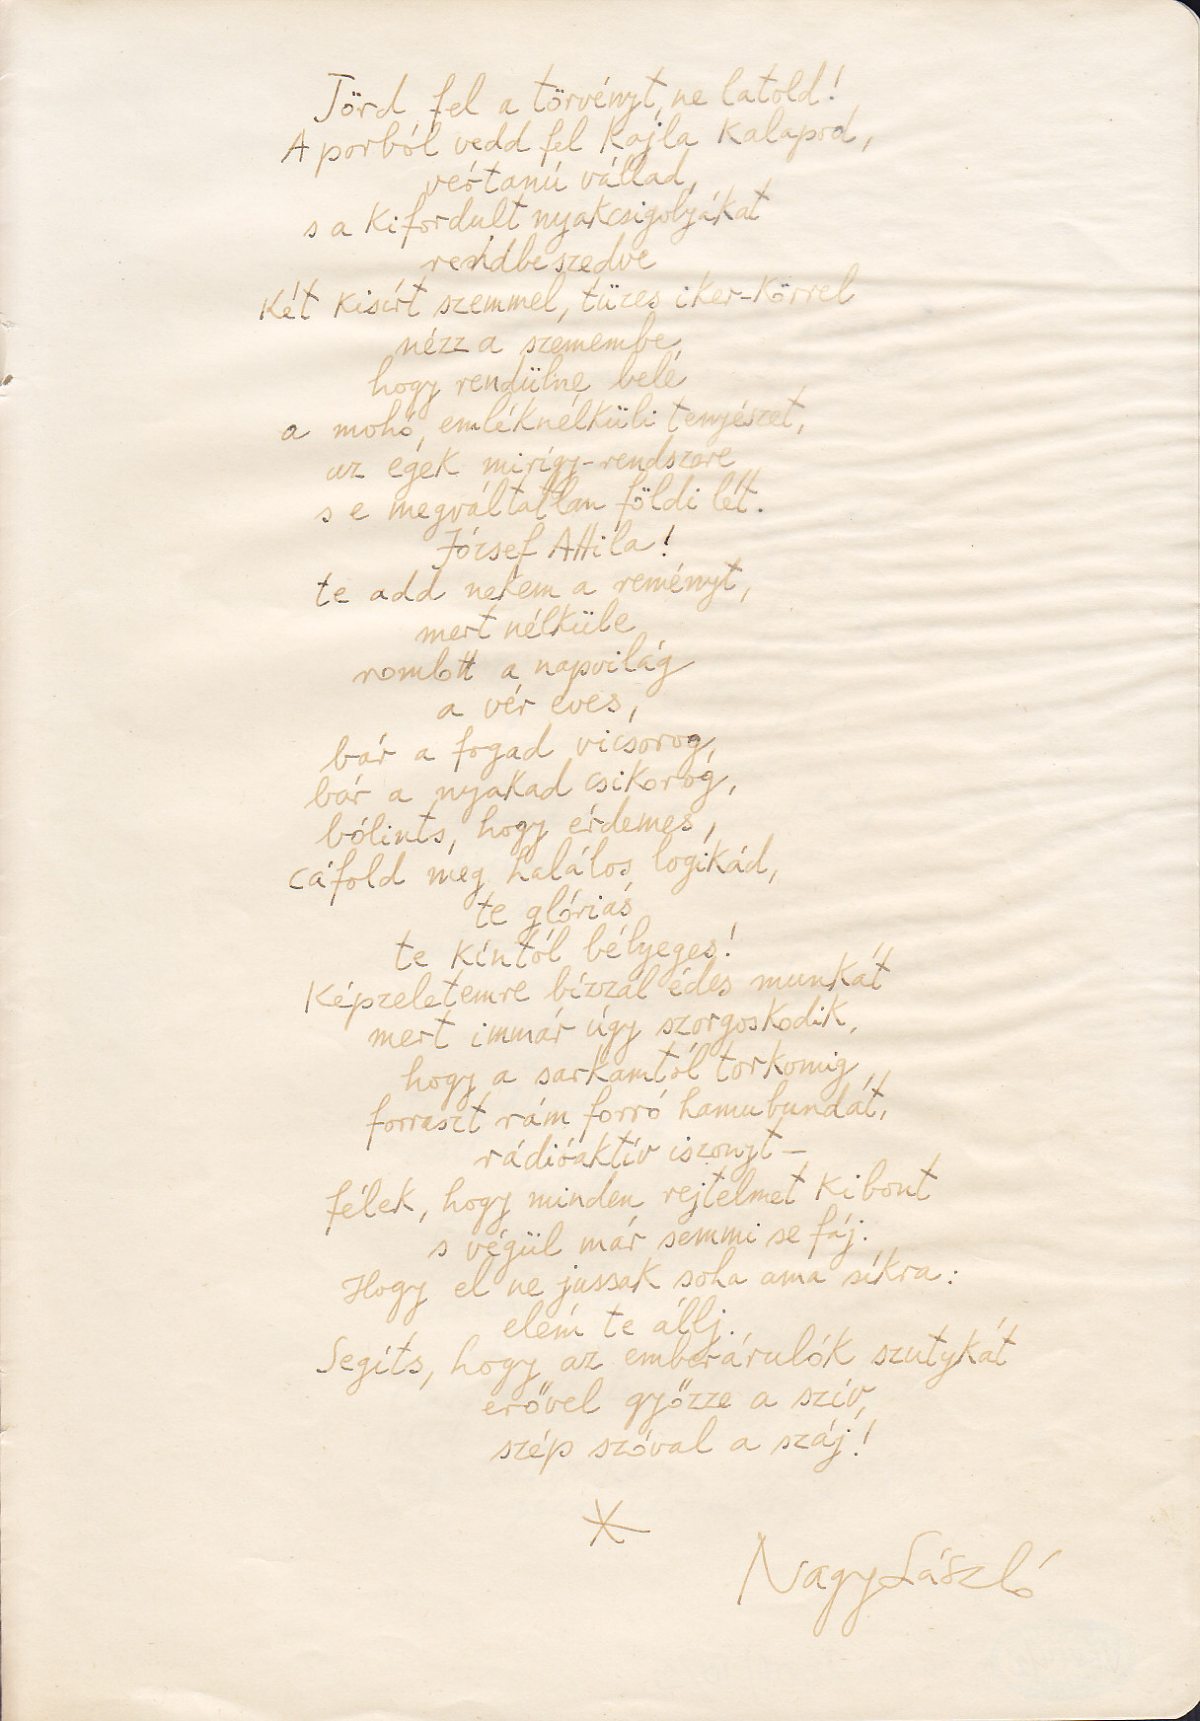 Törd fel a törvényt, ne latold!
A porból vedd fel kajla kalapod,
vértanú vállad,
s a kifordult nyakcsigolyákat
rendbeszedve
két kisírt szemmel, tüzes iker-körrel
nézz a szemembe,
hogy rendülne belé
a mohó, emléknélküli tenyészet,
az egek mirigy-rendszere
s e megváltatlan földi lét.
József Attila!
te add nekem a reményt,
mert nélküle
romlott a napvilág
a vér eves,
bár a fogad vicsorog,
bár a nyakad csikorog,
bólints, hogy érdemes,
cáfold meg halálos logikád,
te glóriás
te kíntól bélyeges!
Képzeletemre bízzál édes munkát
mert immár úgy szorgoskodik,
hogy a sarkamtól torkomig
forraszt rám forró hamubundát,
rádióaktív iszonyt –
félek, hogy minden rejtelmet kibont
s végül már semmi se fáj.
Hogy el ne jussak soha ama síkra:
elém te állj.
Segíts, hogy az emberárulók szutykát
erővel győzze a szív,
szép szóval a száj!
Nagy László